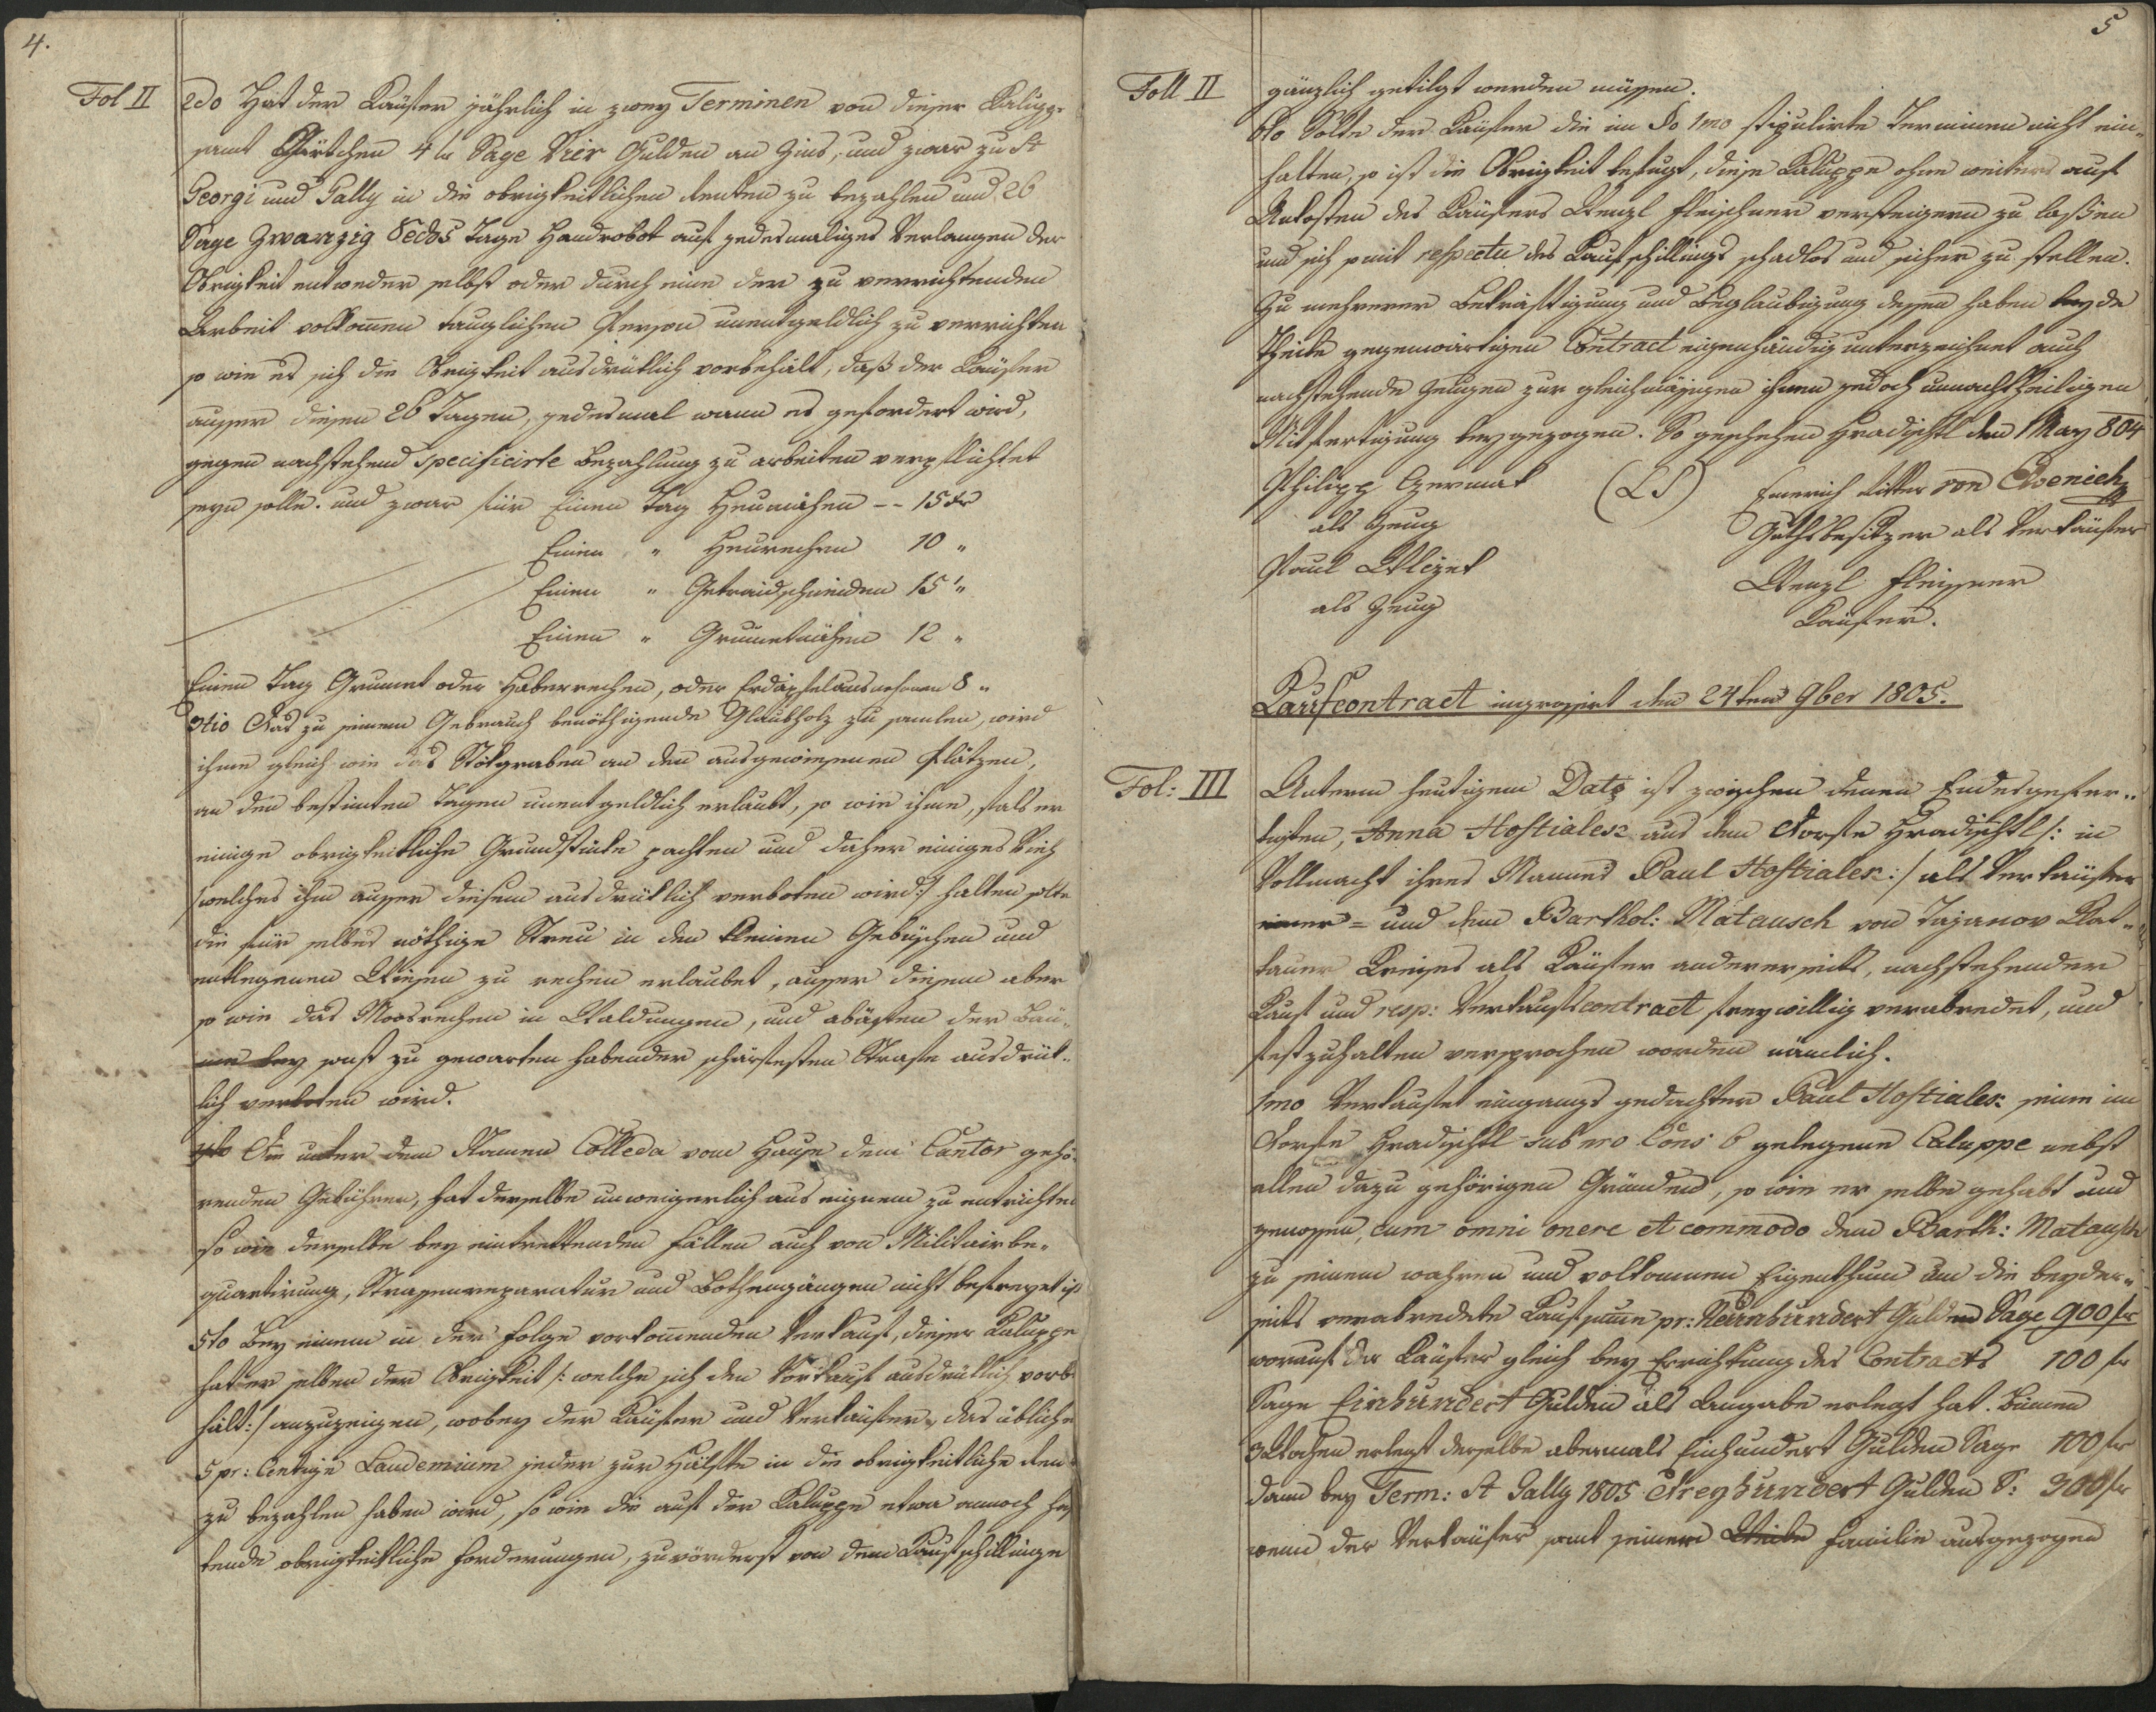 4.
Fol II
2do Hat der Käufer jährlich in zwey Terminen von dieser Kaluppe
samt Gärtchen 4 fr Sage Vier Gulden an Zins, und zwar zu St
Georgi und Gally in die obrigkeitlichen Renten zu bezahlen und 26
Sage Zwanzig Sechs Tage Handrobot auf jedesmaliges Verlangen der
Obrigkeit entweder selbst oder durch eine der zu verrichtenden
Arbeit vollkom̄en tauglichen Person unentgeldlich zu verrichten
so wie es sich die Obrigkeit ausdrüklich vorbehält, daß der Käufer
ausser diesen 26 Tagen, jedesmal wann es gefordert wird,
gegen nachstehend specificirte Bezahlung zu arbeiten verpflichtet
seyn solle. und zwar für Einen Tag Heumähen -- 15 kr
Einen " Heurechen 10 "
Einen " Getraidschneiden 15 "
Einen " Grum̄etmähen 12 "
Einen Tag Grummet oder Haberrechen, oder Erdäpfelausnehmen 8 "
3tio Das zu seinem Gebrauch benöthigende Glaubholz zu samlen, wird
ihme gleich wie das Stökgraben an den ausgewiesenen Plätzen,
an den bestimten Tagen unentgeldlich erlaubt, so wie ihme, fals er
einige obrigkeitliche Grundstüke pachten und daher einiges Vieh
/welches ihm ausser diesem ausdrüklich verboten wird:/ halten solte
die für selbes nöthige Streu in den kleinen Gebüschen und
entlegenen Wiesen zu rechen erlaubet, ausser diesem aber
so wie das Moosrechen in Waldungen, und abästen der Bäu-
me bey sonst zu gewarten habender schärfesten Strafe ausdrük-
lich verboten wird.
4to Die unter dem Namen Colleda vom Hause dem Cantor gehö-
renden Gebühren, hat derselbe unweigerlich aus eignem zu entrichten
so wie derselbe bey eintrettenden Fällen auch von Militairbe-
quartirung, Strassenreparatur und Bothengängen nicht befreyet ist
5to Bey einem in der Folge vorkom̄enden Verkauf, dieser Kaluppe
hat er selben der Obrigkeit /: welche sich den Vorkauf ausdrüklich vorb
hält:/ anzuzeigen, wobey der Käufer und Verkäufer, das übliche
5 pr: Centige Laudemium jeder zur Hälfte in die obrigkeitliche Ren
zu bezahlen haben wird, so wie die auf der Kaluppe etwa annoch haf
tende obrigkeitliche Forderungen, zuvörderst von dem Kaufschillinge
5
Foll II
gänzlich getilgt werden müssen.
6to Solte der Käufer die im §o 1mo stipulirte Terminen nicht ein-
halten, so ist die Obrigkeit befugt, diese Kaluppe ohne weiters auf
Unkosten des Käufers Wenzl Fleischner versteigern zu lassen
und sich somit respectu des Kaufschillings schadlos und sicher zu stellen.
Zu mehrerer Bekräftigung und Beglaubigung dessen haben beyde
Theile gegenwärtigen Contract eigenhändig unterzeichnet auch
nachstehende Zeugen zur gleichmässigen ihnen jedoch unnachtheiligen
Mitfertigung beygezogen. So geschehen Hradischtl den 1 May 804
Philipp Czermak
als Zeug
(LS)
Emerich Ritter von
Guthsbesitzer als Verkäufer
Paul
als Zeug
Wenzl Fleissner
Käufer.
Kaufcontract ingrossirt den 24ten 9ber 1805.
Fol: III
Unterm heutigem Dato ist zwischen denen Endesgefer-
tigten, Anna Hostialek aus dem Dorfe Hradischtl /: in
Vollmacht ihres Mannes Paul Hostialek :/ als Verkäufer
einer = und dem Barthol: Matausch von Tajanov Klat-
tauer Kreises als Käufer andererseits, nachstehender
Kauf und resp: Verkaufscontract freywillig verabredet, und
festzuhalten versprochen worden nämlich.
1mo Verkaufet eingangs gedachter Paul Hostialek seine im
Dorfe Hradischtl sub nro Cons 6 gelegene Caluppe nebst
allen dazu gehörigen Gründen, so wie er selbe gehabt und
genossen, cum omni onere et commodo dem Barth: Matausch
zu seinem wahren und volkommen Eigenthum um die beyder-
seits verabredete Kaufsum̄e pr: Neunhundert Gulden Sage 900 fr
worauf der Käufer gleich bey Errichtung des Contracts 100 fr
Sage Einhundert Gulden als Angabe erlegt hat. Binnen
3 Wochen erlegt derselbe abermals Einhundert Gulden Sage 100 fr
dann bey Term: St Gally 1805 Dreyhundert Gulden S: 300 fr
wenn der Verkäufer samt seinem Weibe Familie ausgezogen